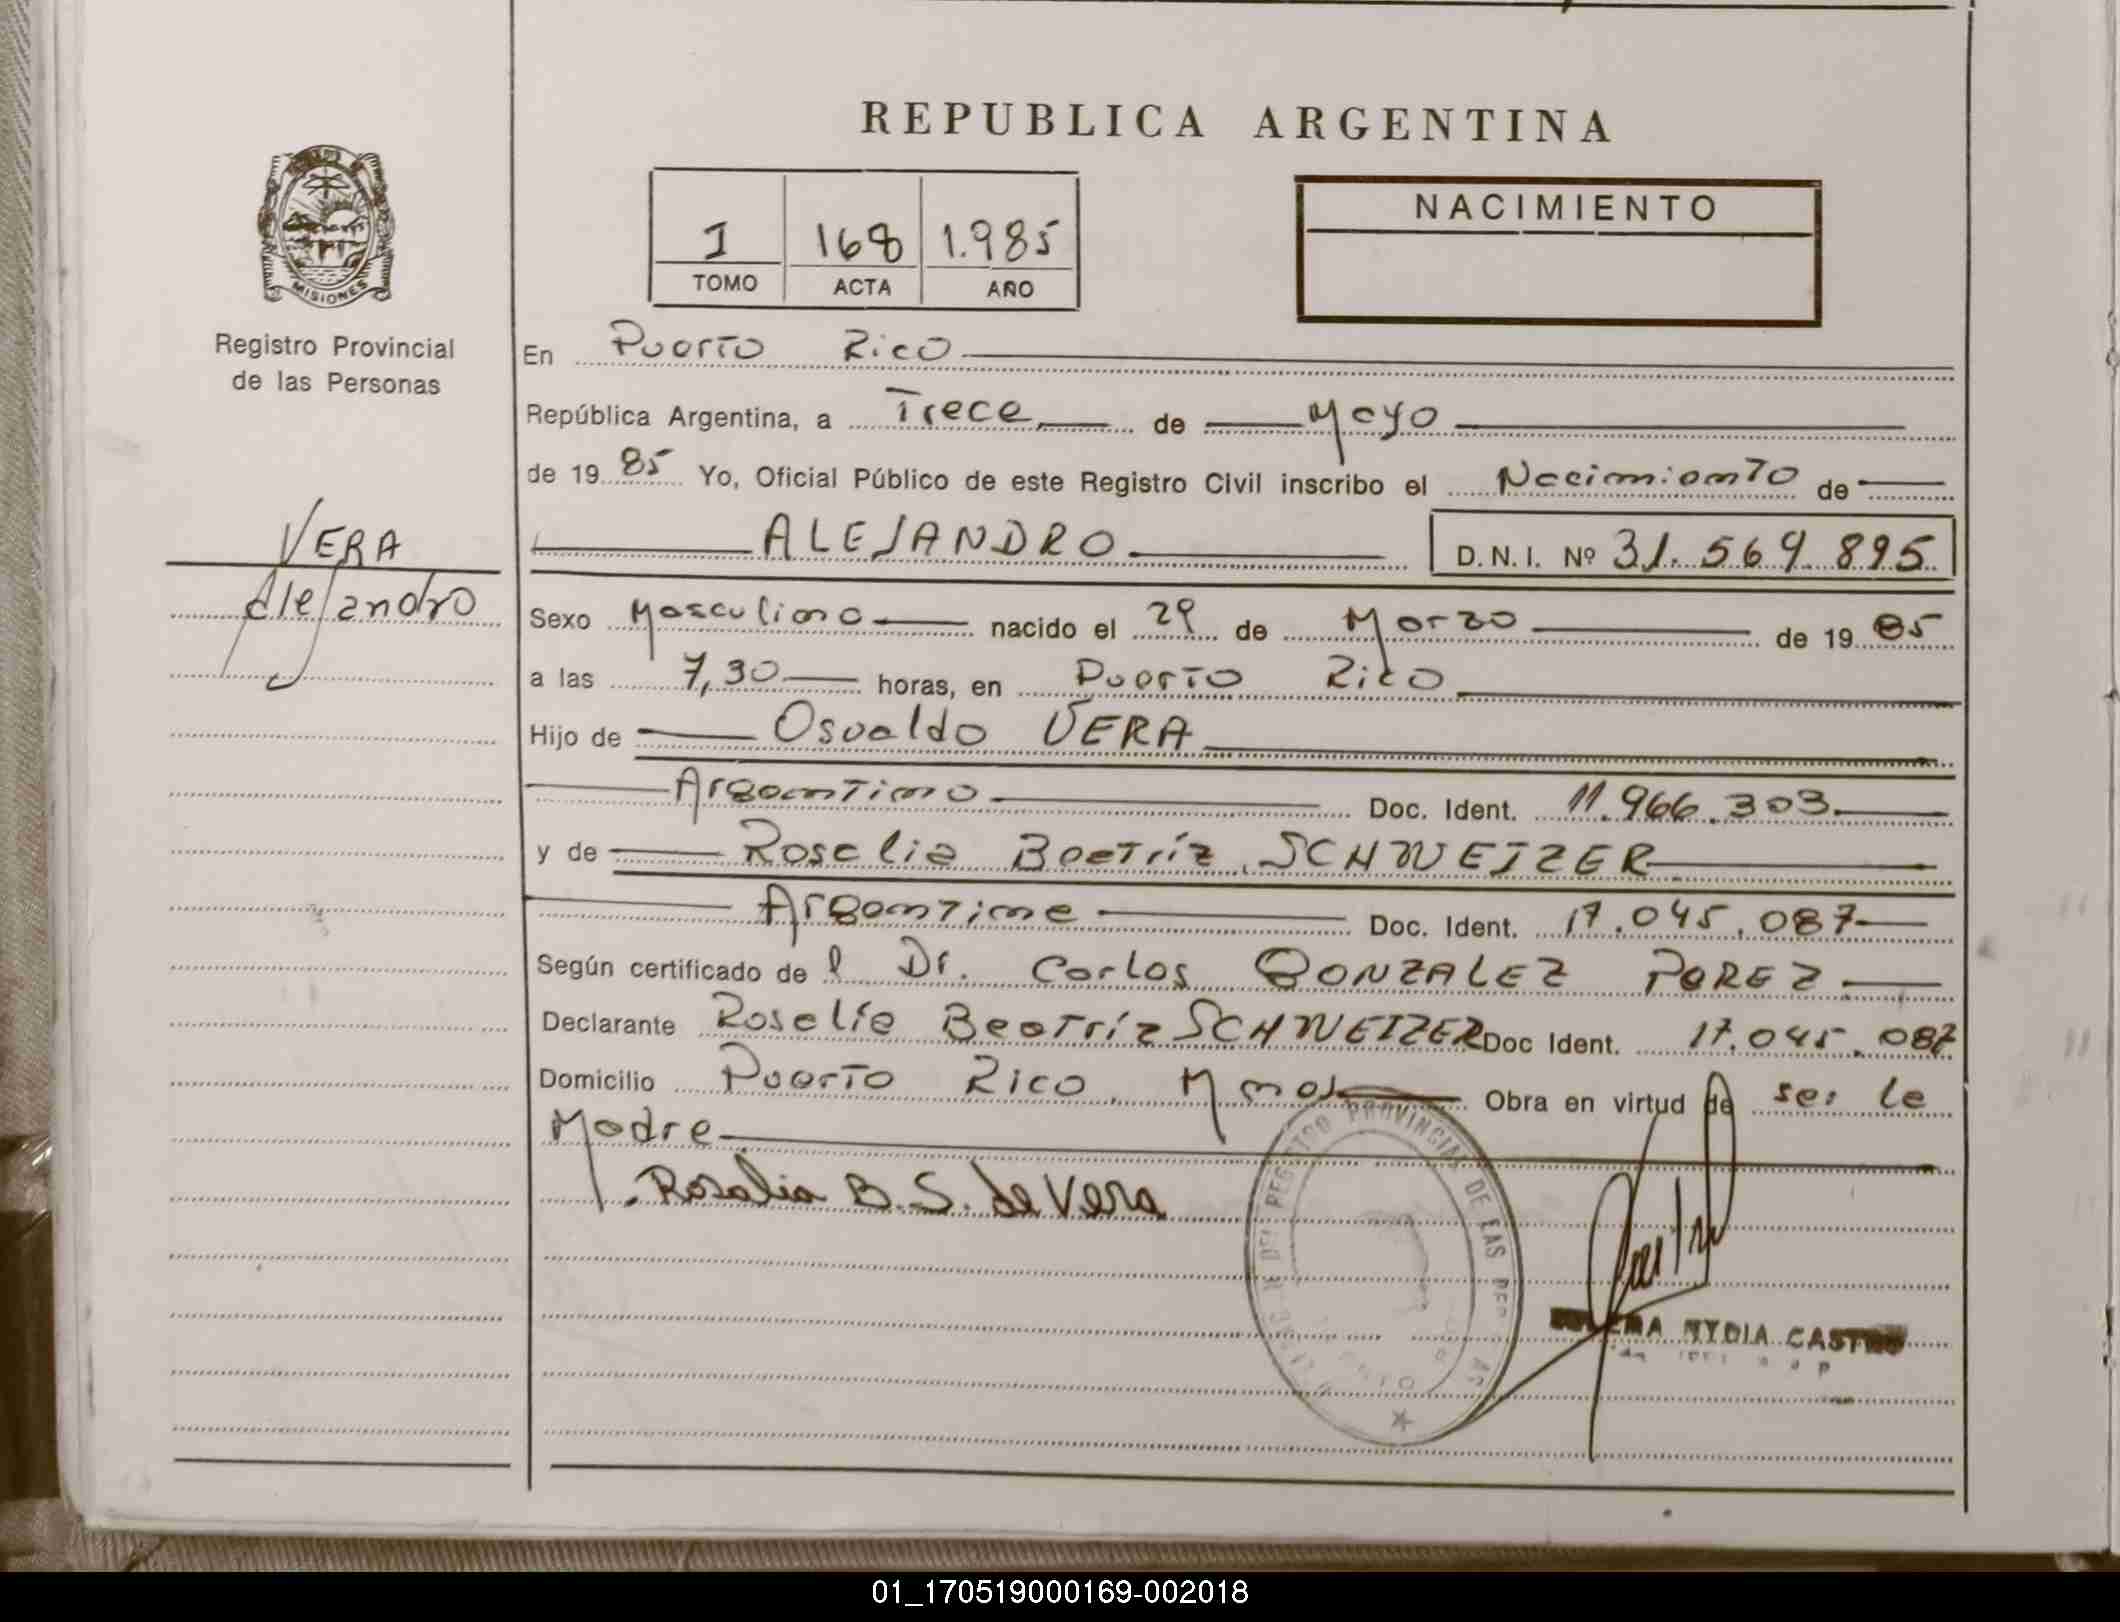 REPUBLICA ARGENTINA
I 168 1.985
TOMO ACTA AÑO
NACIMIENTO
MISIONES
Registro Provincial
de las Personas
VERA
Alejandro
En Puerto Rico
República Argentina, a Trece de Mayo
de 1985 Yo, Oficial Público de este Registro Civil inscribo el Nacimiento de
ALEJANDRO D.N.I. Nº 31.569.895
Sexo Masculino nacido el 29 de Marzo de 1985
a las 7,30 horas, en Puerto Rico
Hijo de Osvaldo VERA
Argentino Doc. Ident. 11.966.303
y de Rosalia Beatríz SCHWEIZER
Argentina Doc. Ident. 17.045.087
Según certificado del Dr. Carlos GONZALEZ PEREZ
Declarante Rosalía Beatríz SCHWEIZER Doc Ident. 17.045.087
Domicilio Puerto Rico, Mnes Obra en virtud de ser la
Madre
Rosalia B. S. de Vera
DEL REGISTRO PROVINCIAL DE LAS
NYDIA CASTRO
01_170519000169-002018